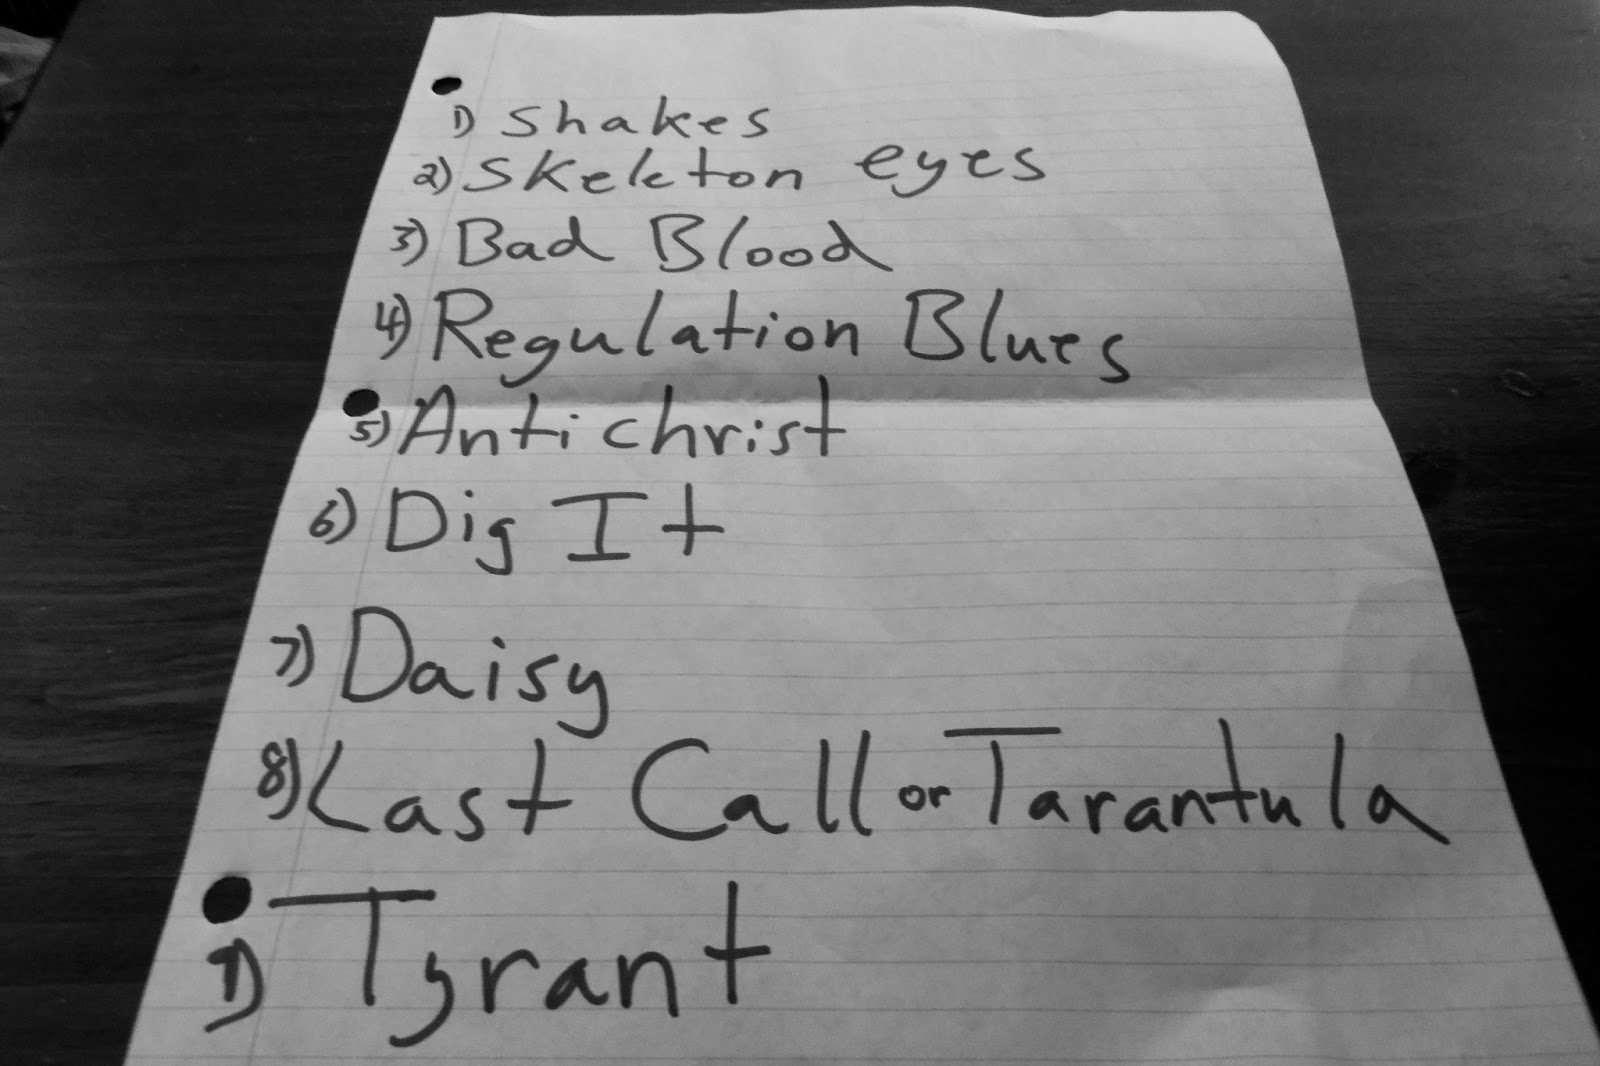 1) Shakes
2) Skeleton eyes
3) Bad Blood
4) Regulation Blues
5) Antichrist
6) Dig It
7) Daisy
8) Last Call or Tarantula
9) Tyrant